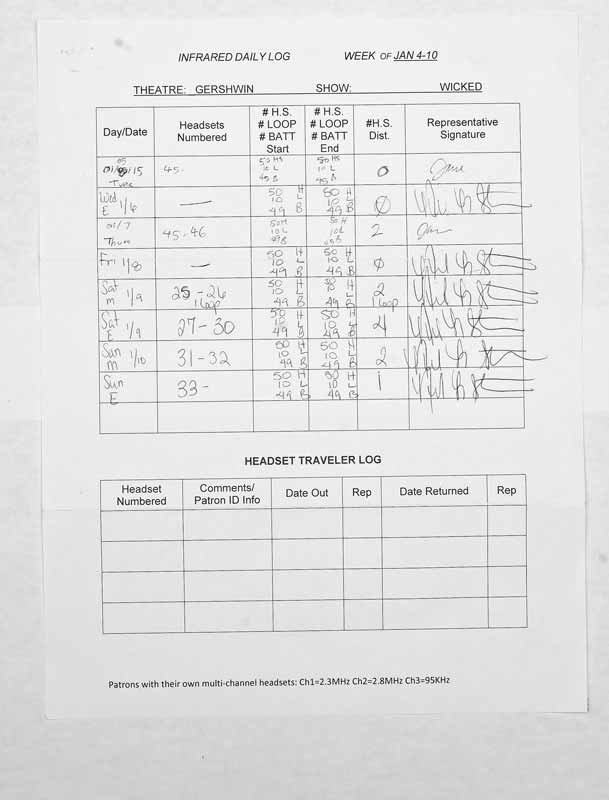 INFRARED DAILY LOG WEEK OF JAN 4-10
THEATRE: GERSHWIN SHOW: WICKED
Day/Date Headsets Numbered # H.S. # LOOP # BATT Start # H.S. # LOOP # BATT End #H.S. Dist. Representative Signature
Tues 45. 50 HS 10 L 49 B 50 HS 10 L 49 B 0
Wed E 1/6 — 50 H 10 L 49 B 50 H 10 L 49 B 0
01/7 Thurs 45-46 50H 10L 49B 50H 10L 49B 2
Fri 1/8 — 50 H 10 L 49 B 50 H 10 L 49 B 0
Sat m 1/9 25-26 1 loop 50 H 10 L 49 B 50 H 10 L 49 B 2 1 loop
Sat E 1/9 27-30 50 H 10 L 49 B 50 H 10 L 49 B 4
Sun m 1/10 31-32 50 H 10 L 49 B 50 H 10 L 49 B 2
Sun E 33- 50 H 10 L 49 B 50 H 10 L 49 B 1
HEADSET TRAVELER LOG
Headset Numbered Comments/ Patron ID Info Date Out Rep Date Returned Rep
Patrons with their own multi-channel headsets: Ch1=2.3MHz Ch2=2.8MHz Ch3=95KHz